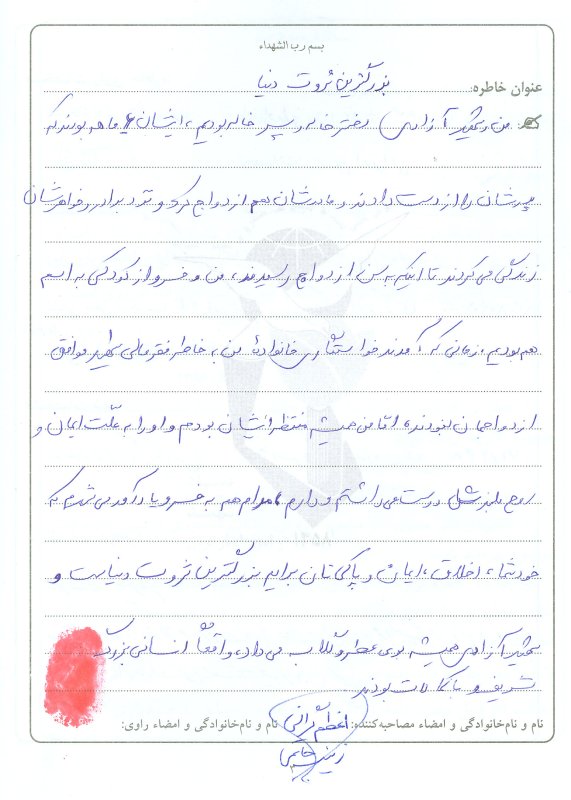 بسم رب الشهداء
عنوان خاطره: بزرگترین ثروت دنیا
من و شهید آزادی دخترخاله و پسرخاله بودیم، ایشان ۶ ماهه بودند که
پدرشان را از دست دادند و مادرشان هم ازدواج کرد و نزد برادر و خواهرشان
زندگی می‌کردند تا اینکه به سن ازدواج رسیدند، من و خسرو از کودکی به اسم
هم بودیم، زمانی که آمدند خواستگاری خانوادهٔ من به خاطر فقر مالی شهید موافق
ازدواجمان نبودند، امّا من همیشه منتظر ایشان بودم و او را به علّت ایمان و
روح بلندش دوست می‌داشتم و دارم، مدام هم به خسرو یادآور می‌شدم که
خود شما، اخلاق، ایمان و پاکی‌تان برایم بزرگترین ثروت دنیاست و
شهید آزادی همیشه بوی عطر و گلاب می‌داد، واقعاً انسانی بزرگ
شریف و با کمالات بودند
نام و نام‌خانوادگی و امضاء مصاحبه‌کننده: اعظم نام و نام‌خانوادگی و امضاء راوی:
زینب